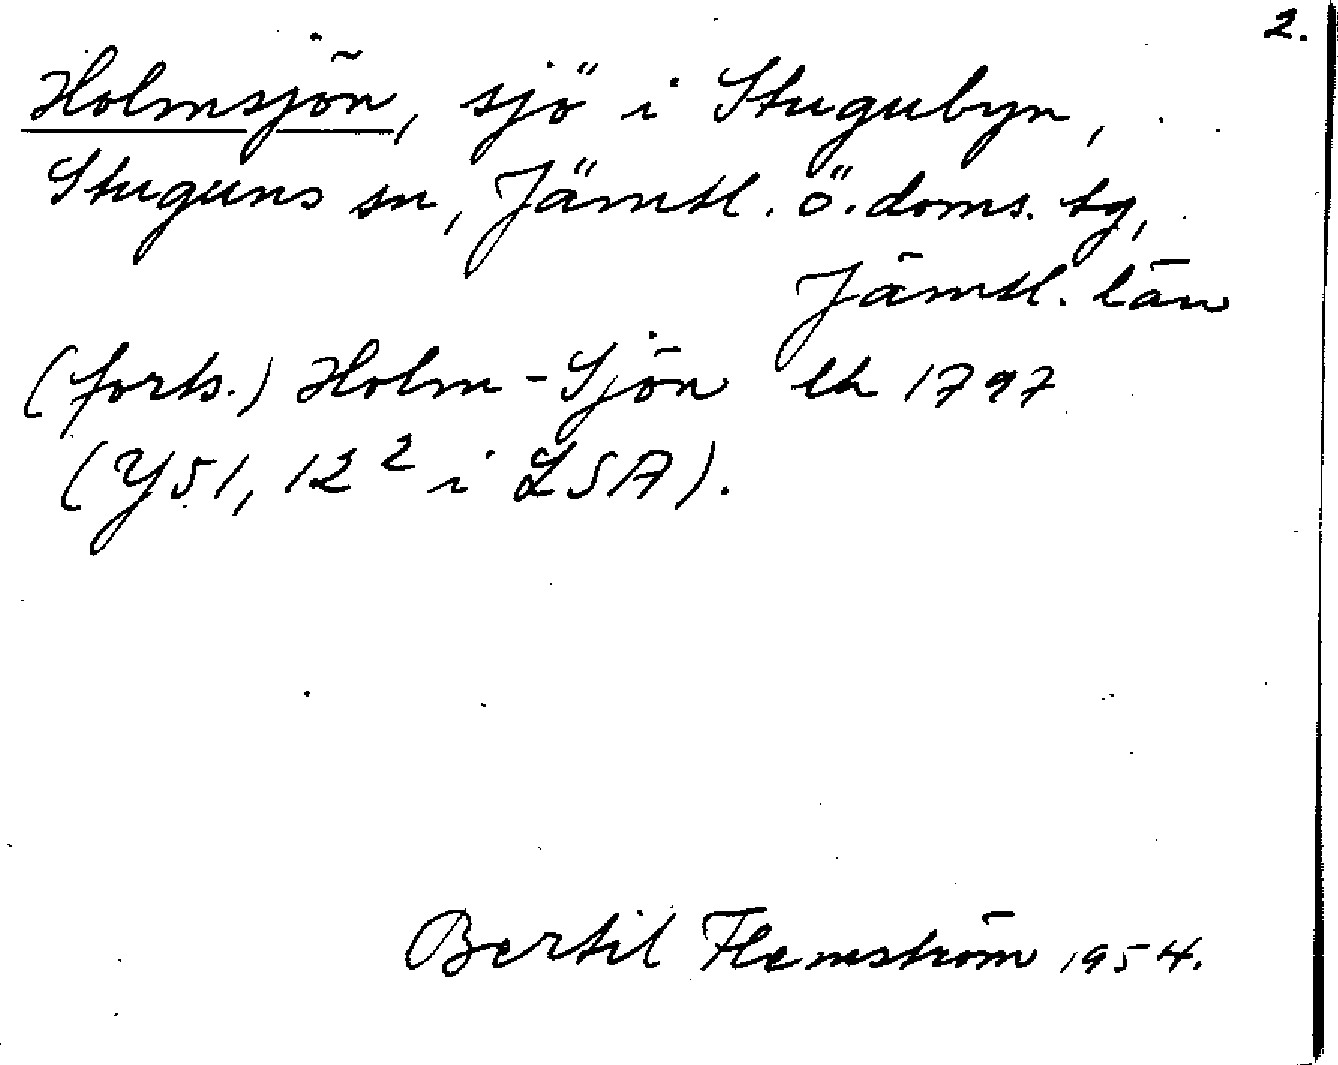 2.
Holmsjön, sjö i Stugubyn,
Stuguns sn, Jämtl. ö. doms. tg,
Jämtl. län
(forts.) Holm-Sjön lh 1797
(Y51, 12² i LSA).
Bertil Flemström 1954.